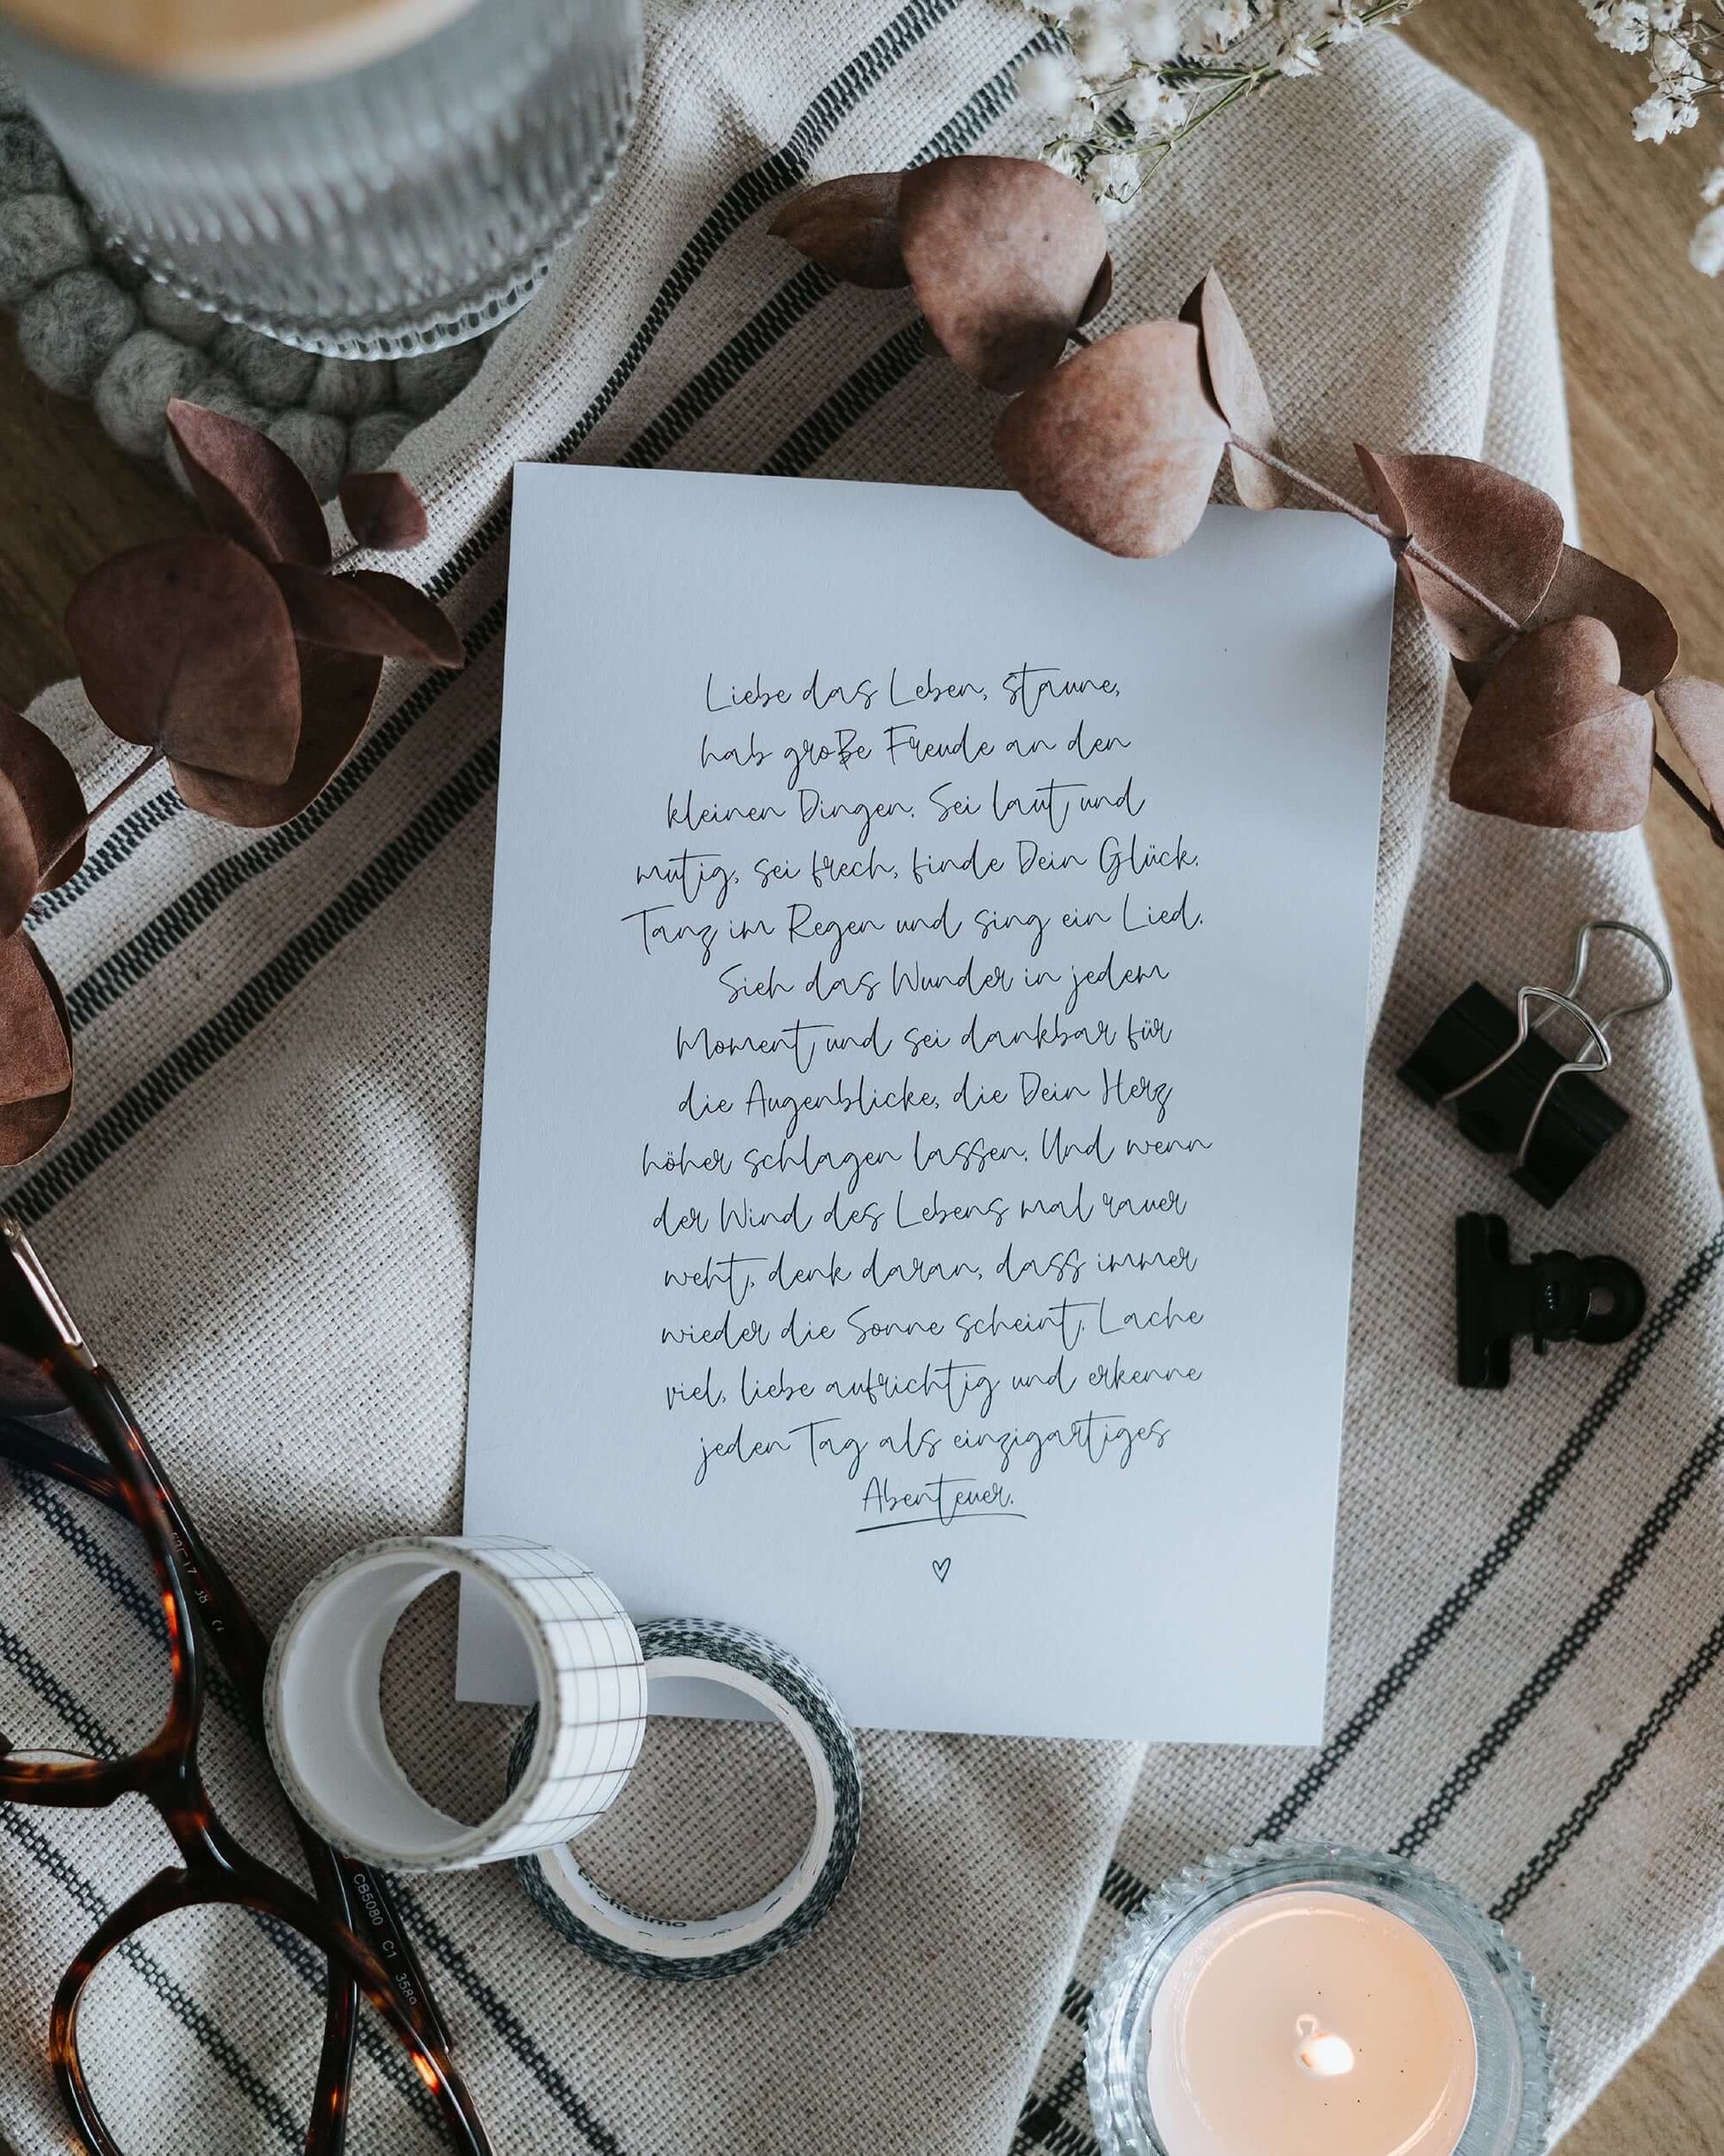 Liebe das Leben, staune,
hab große Freude an den
kleinen Dingen. Sei laut und
mutig, sei frech, finde Dein Glück.
Tanz im Regen und sing ein Lied.
Sieh das Wunder in jedem
Moment und sei dankbar für
die Augenblicke, die Dein Herz
höher schlagen lassen. Und wenn
der Wind des Lebens mal rauer
weht, denk daran, dass immer
wieder die Sonne scheint. Lache
viel, liebe aufrichtig und erkenne
jeden Tag als einzigartiges
Abenteuer.
CB5080 C1 3580